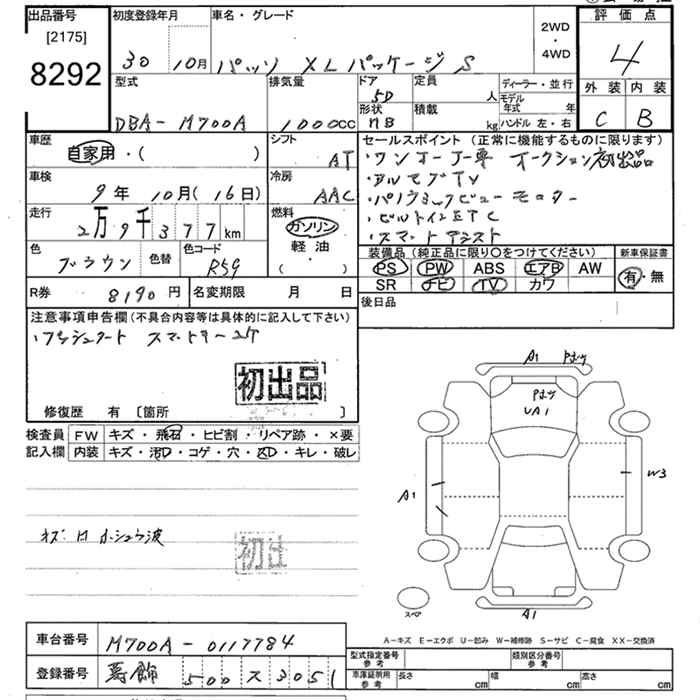 出品番号
[2175]
8292
初度登録年月
30 10月
車名・グレード
パッソ XLパッケージS
2WD
・
4WD
評価点
4
外装 内装
C B
型式
DBA-M700A
排気量
1000cc
ドア
5D
形状
HB
定員
人
積載
kg
ディーラー・並行
モデル年式 年
ハンドル 左・右
車歴
自家用・( )
シフト
AT
車検
9年 10月(16日)
冷房
AAC
走行
2万9千377km
燃料
ガソリン
軽油・
( )
色
ブラウン
色替
色コード
R59
セールスポイント(正常に機能するものに限ります)
・ワンオーナー車 オークション初出品
・フルセグTV
・パノラミックビューモニター
・ビルトインETC
・スマートアシスト
装備品(純正品に限り○をつけてください)
PS PW ABS エアB AW
SR ナビ TV カワ
新車保証書
有・無
R券 8190円
名変期限 月 日
後日品
注意事項申告欄(不具合内容等は具体的に記入して下さい)
・プッシュスタート スマートキー2ケ
初出品
修復歴 有 [箇所 ]
検査員
記入欄
FW キズ・飛石・ヒビ割・リペア跡・×要
内装 キズ・汚D・コゲ・穴・スD・キレ・破レ
A1
Pカケ
Pカケ
UA1
A1
W3
A1
スペア
A-キズ E-エクボ U-凹み W-補修跡 S-サビ C-腐食 XX-交換済
車台番号 M700A-0117784
登録番号 葛飾 500 ス 3051
型式指定番号
参考
類別区分番号
参考
車庫証明用
参考
長さ cm 幅 cm 高さ cm